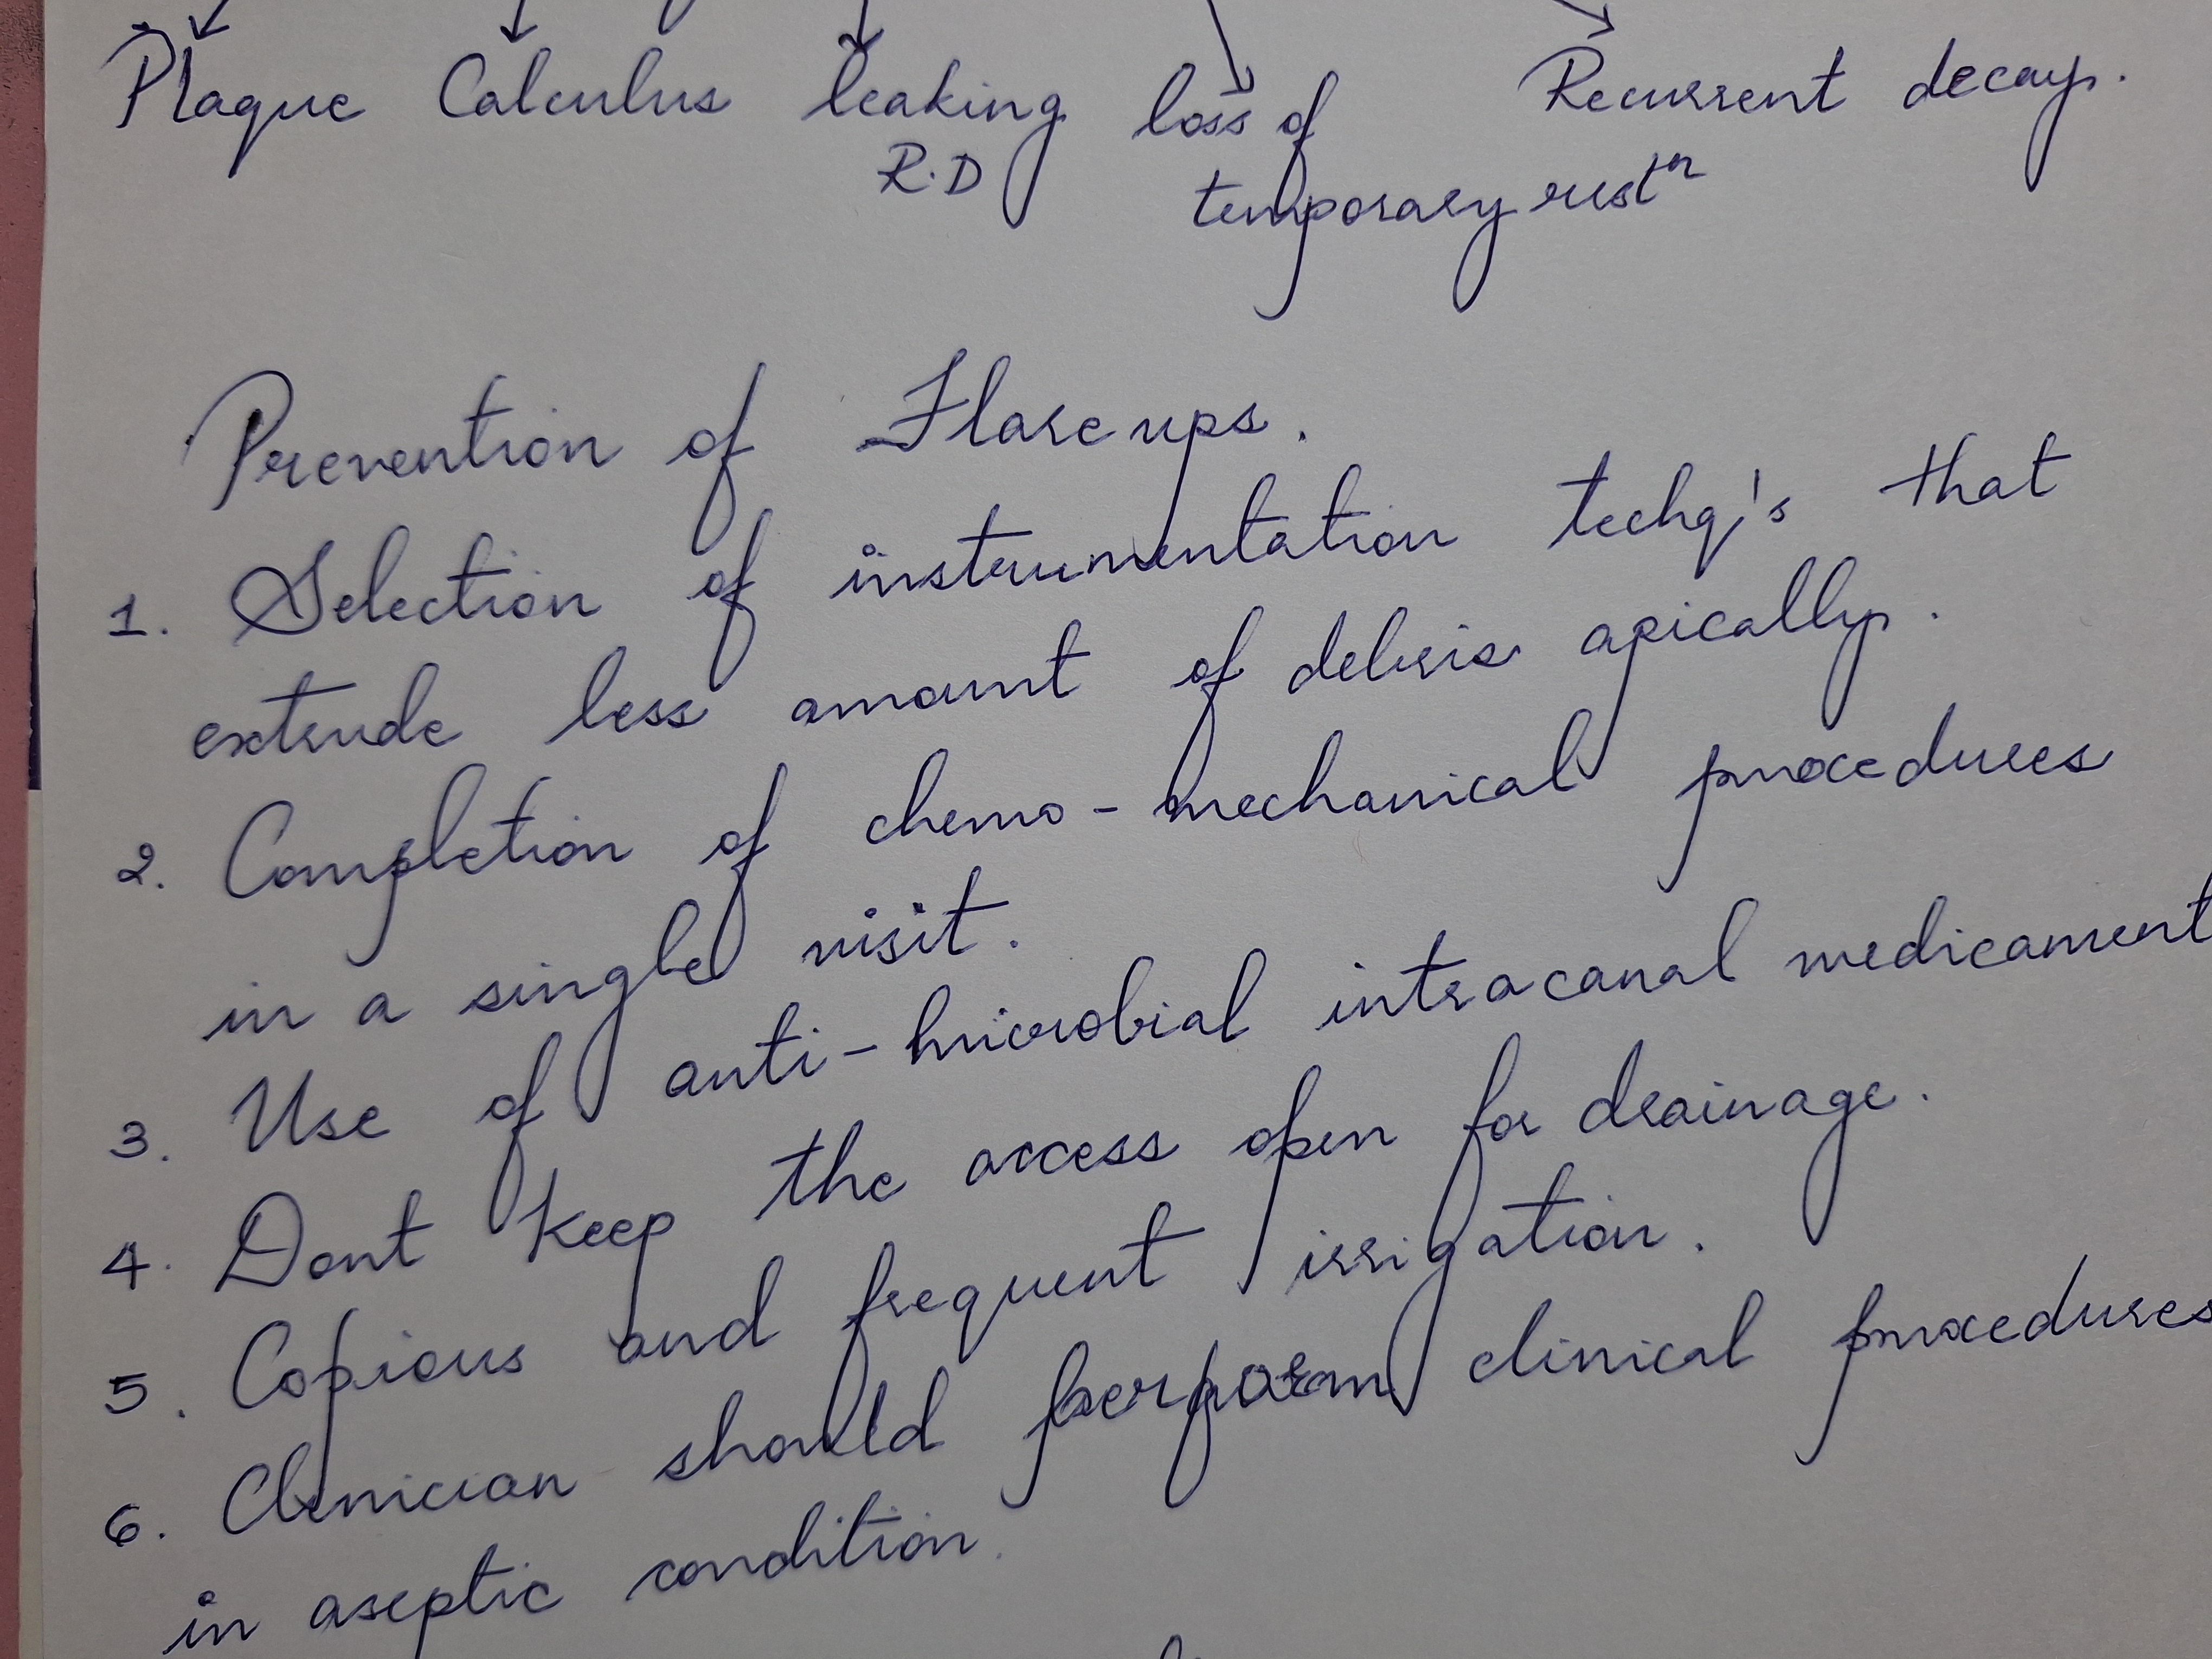 Plaque Calculus leaking loss of Recurrent decay.
R.D temporary restⁿ
Prevention of Flare ups.
1. Selection of instrumentation techq's that
extrude less amount of debris apically.
2. Completion of chemo-mechanical procedures
in a single visit.
3. Use of anti-microbial intracanal medicament
4. Dont keep the access open for drainage.
5. Copious and frequent irrigation.
6. Clinician should perform clinical procedures
in aseptic condition.